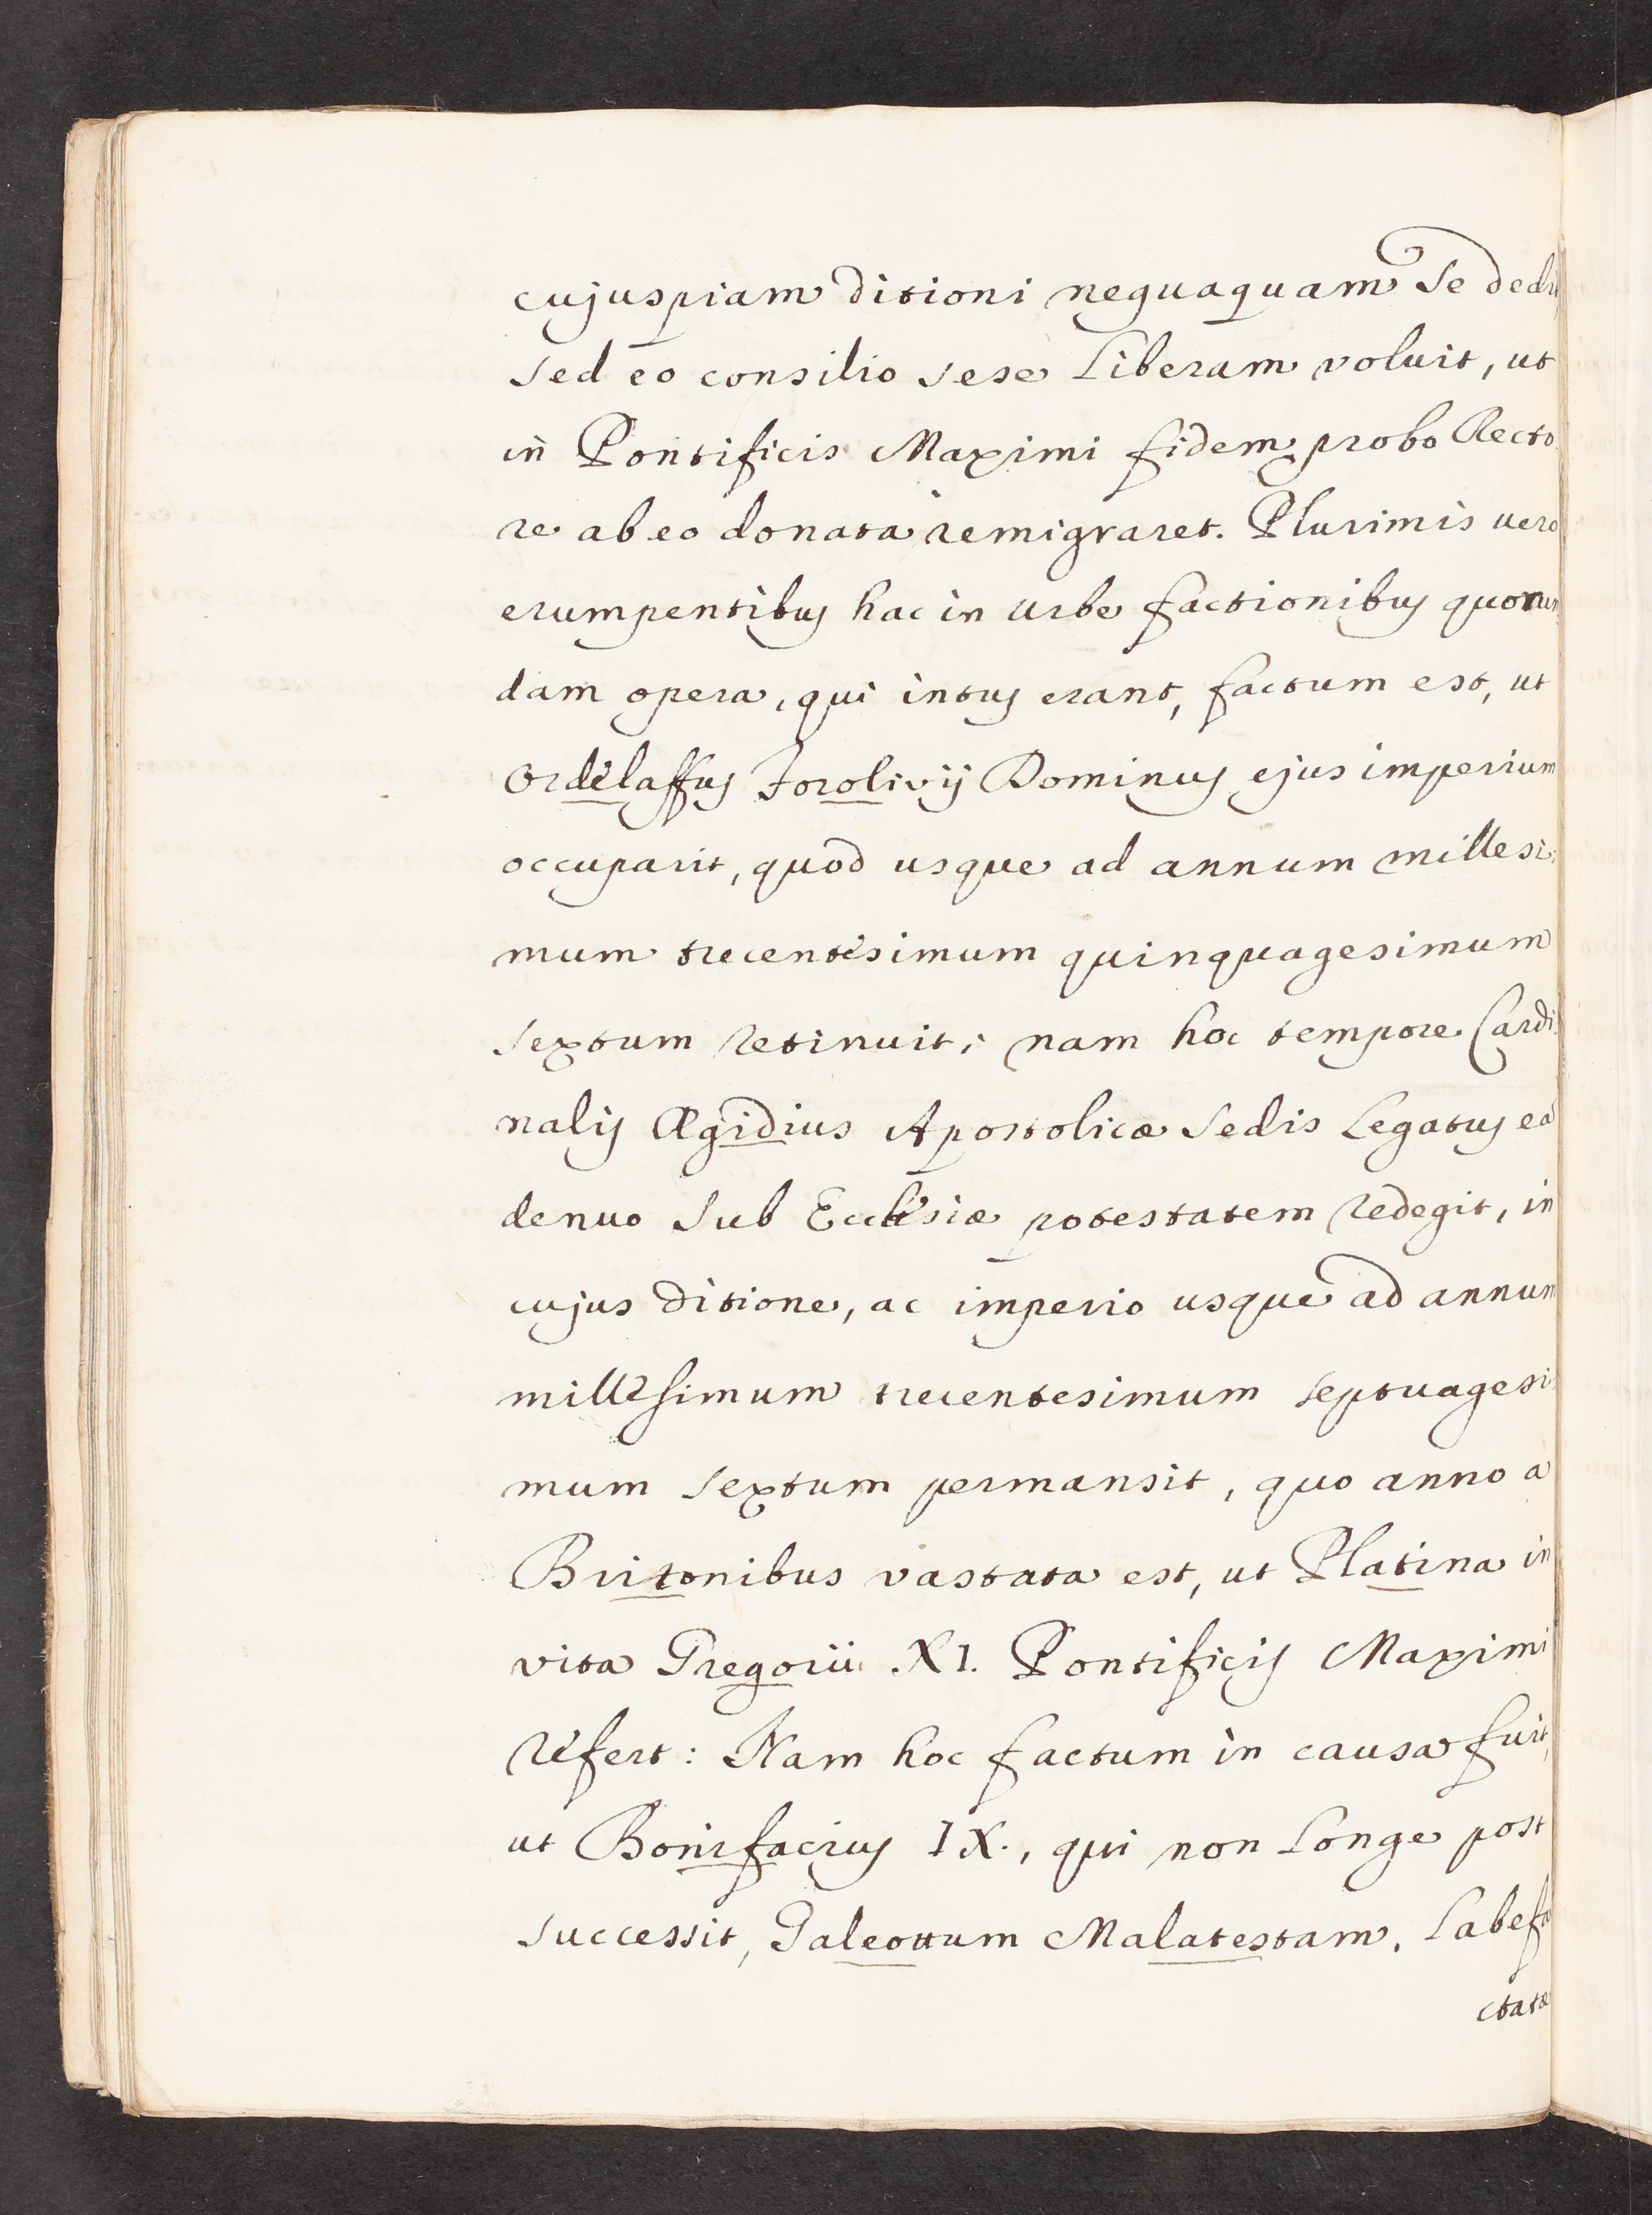 cujuspiam ditioni nequaquam se dedit
sed eo consilio sese liberam voluit, ut
in Pontificis Maximi fidem probo Recto
re ab eo donata remigraret. Plurimis vero
erumpentibus hac in urbe factionibus quorun
dam opera, qui intus erant, factum est, ut
Ordelaffus Forolivij Dominus ejus imperium
occuparit, quod usque ad annum millesi
mum trecentesimum quinquagesimum
sextum retinuit; nam hoc tempore Cardi
nalis Ægidius Apostolicæ Sedis Legatus eã
denuo sub Ecclesiæ potestatem redegit, in
cujus ditione, ac imperio usque ad annum
millesimum trecentesimum septuagesi
mum sextum permansit, quo anno a
Britonibus vastata est, ut Platina in
vita Gregorii XI. Pontificis Maximi
refert: Nam hoc factum in causa fuit,
ut Bonifacius IX., qui non longe post
successit, Galeottum Malatestam, labefa
ctatæ